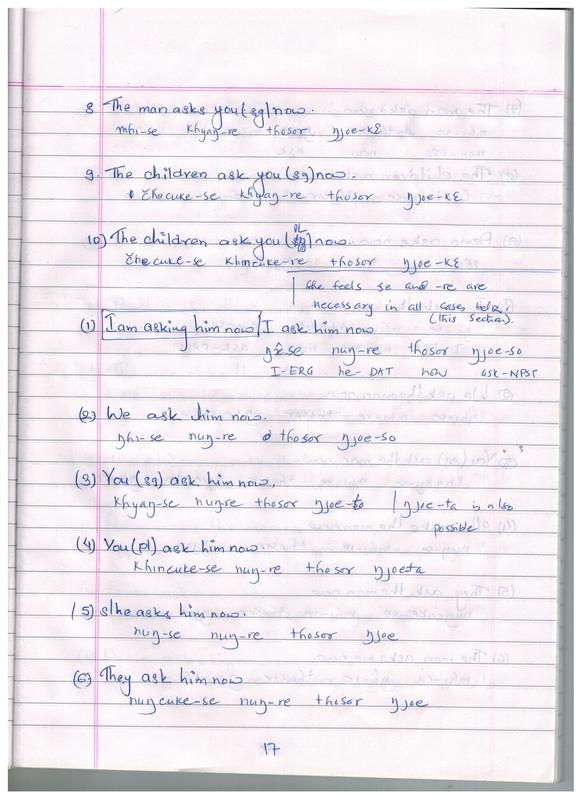 8 The man asks you (sg) now.
mhi-se khyaŋ-re thosor ŋjoe-kɛ
9. The children ask you (sg) now.
žhacuke-se khyaŋ-re thosor ŋjoe-kɛ
10) The children ask you (PL) now.
žhacuke-se khincuke-re thosor ŋjoe-kɛ
she feels se and -re are
necessary in all cases below.
(this section).
(1) I am asking him now / I ask him now
se nuŋ-re thosor ŋjoe-so
I-ERG he-DAT now ask-NPST
(2) We ask him now.
ŋhi-se nuŋ-re thosor ŋjoe-so
(3) You (sg) ask him now.
khyaŋ-se nuŋ-re thosor | ŋjoe-ta is also
possible
(4) You (pl) ask him now.
khincuke-se nuŋ-re thosor ŋjoeta
(5) s/he asks him now.
nuŋ-se nuŋ-re thosor ŋjoe
(6) They ask him now
nuŋcuke-se nuŋ-re thosor ŋjoe
17